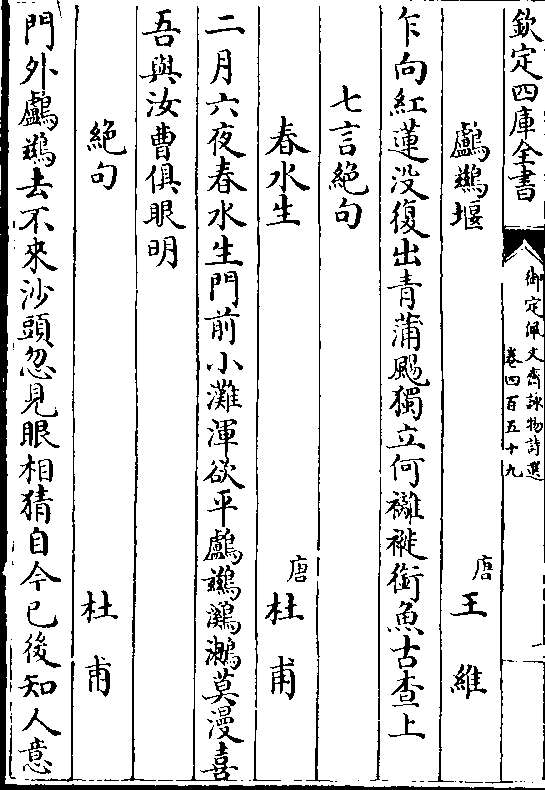 欽定四庫全書
御定佩文齋詠物詩選
卷四百五十九
鸕鷀堰
唐 王維
乍向紅蓮没復出青蒲颺獨立何䙰褷銜魚古查上
七言絶句
春水生
唐 杜甫
二月六夜春水生門前小灘渾欲平鸕鷀鸂鷘莫漫喜
吾與汝曹俱眼明
絶句
杜甫
門外鸕鷀去不來沙頭忽見眼相猜自今已後知人意